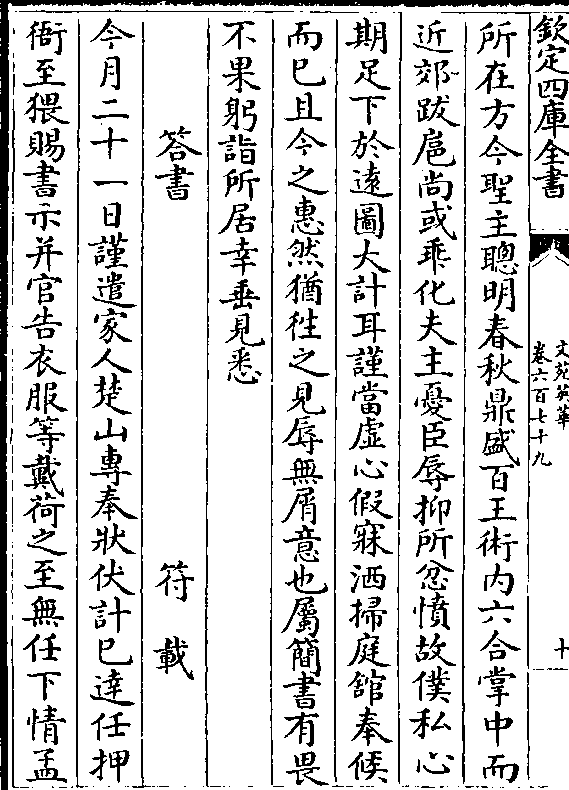 欽定四庫全書
文苑英華
卷六百七十九
十
所在方今聖主聰明春秋鼎盛百王術内六合掌中而
近郊跋扈尚或乖化夫主憂臣辱抑所忿憤故僕私心
期足下於遠圖大計耳謹當虛心假寐洒掃庭舘奉候
而巳且今之惠然猶徃之見辱無屑意也屬簡書有畏
不果躬詣所居幸垂見悉
答書 符載
今月二十一日謹遣家人楚山專奉狀伏計巳達任押
衙至猥賜書示并官告衣服等戴荷之至無任下情孟